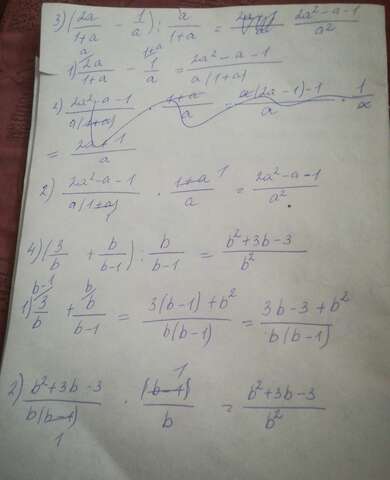 3) (2a/1+a - 1/a) : a/1+a = 2a²-a-1/a²
1) 2a/1+a - 1/a = 2a²-a-1/a(1+a)
2) 2a²-a-1/a(1+a) · 1+a/a = a(2a-1)-1/a · 1/a
= 2a+1/a
2) 2a²-a-1/a(1+a) · 1+a/a = 2a²-a-1/a²
4) (3/b + b/b-1) : b/b-1 = b²+3b-3/b²
1) 3/b + b/b-1 = 3(b-1)+b²/b(b-1) = 3b-3+b²/b(b-1)
2) b²+3b-3/b(b-1) · (b-1)/b = b²+3b-3/b²